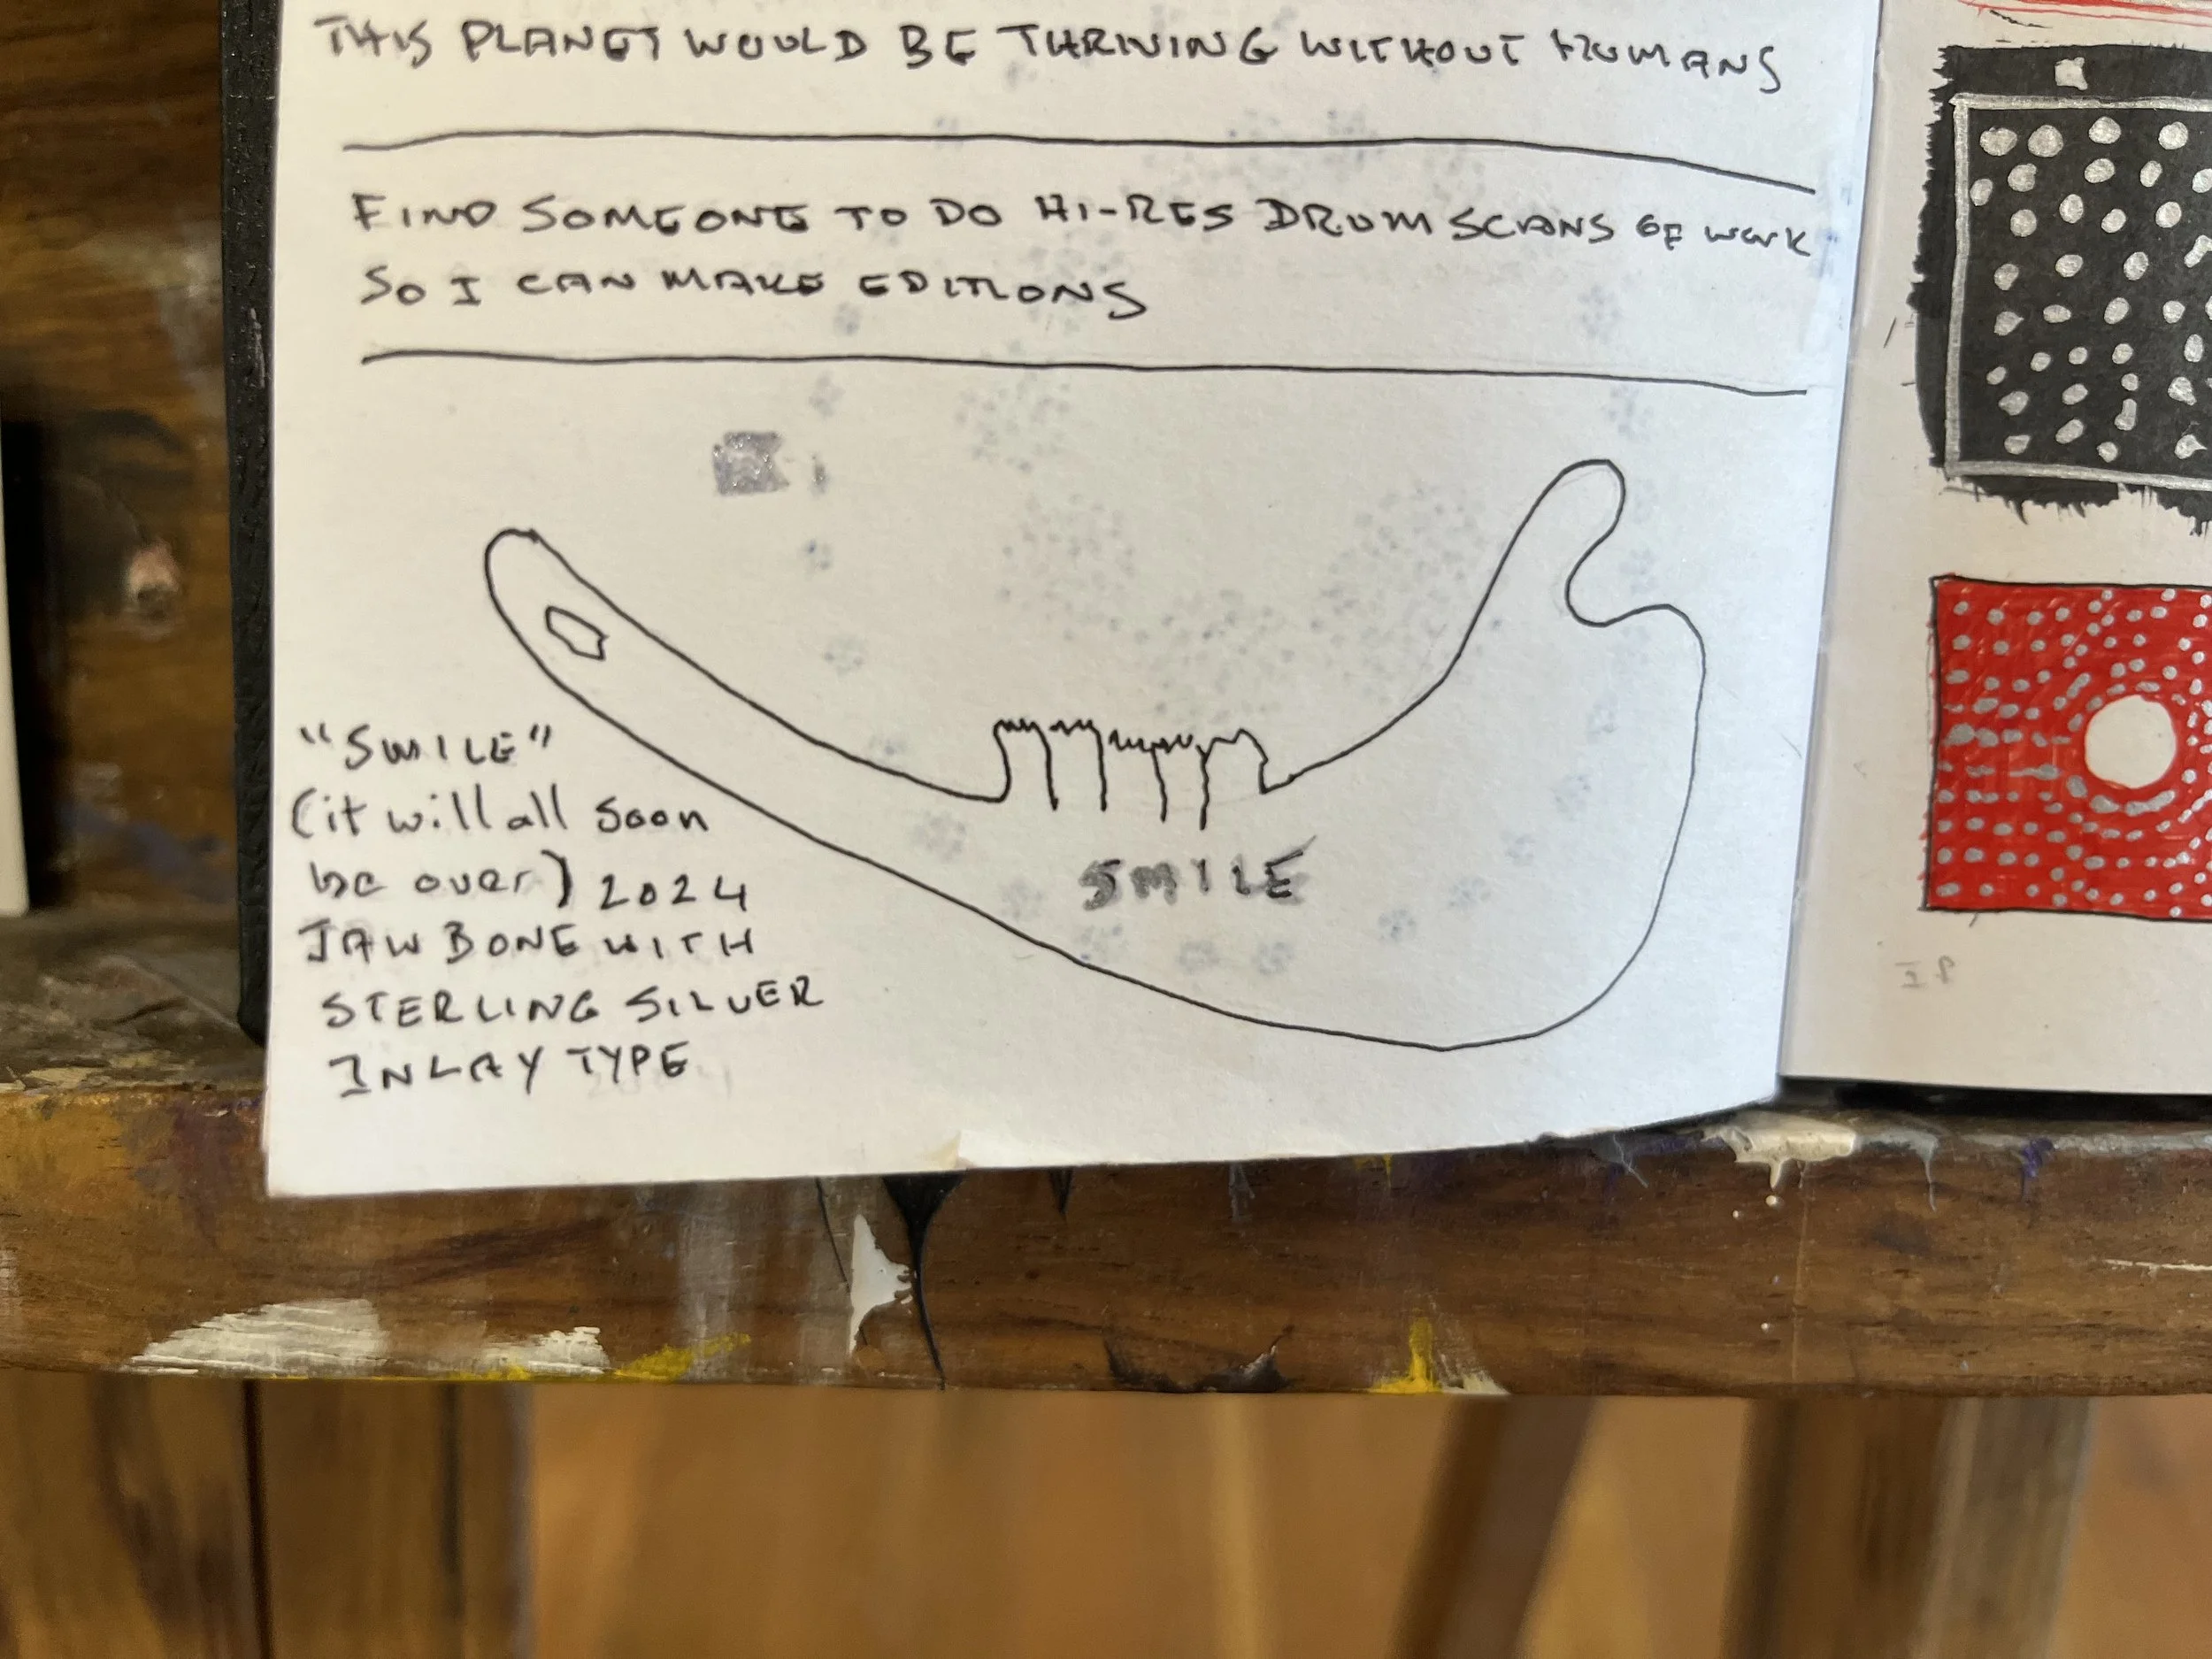 THIS PLANET WOULD BE THRIVING WITHOUT HUMANS
FIND SOMEONE TO DO HI-RES DRUM SCANS OF WORK
SO I CAN MAKE EDITIONS
"SMILE"
(it will all soon
be over) 2024
JAW BONE WITH
STERLING SILVER
INLAY TYPE
SMILE